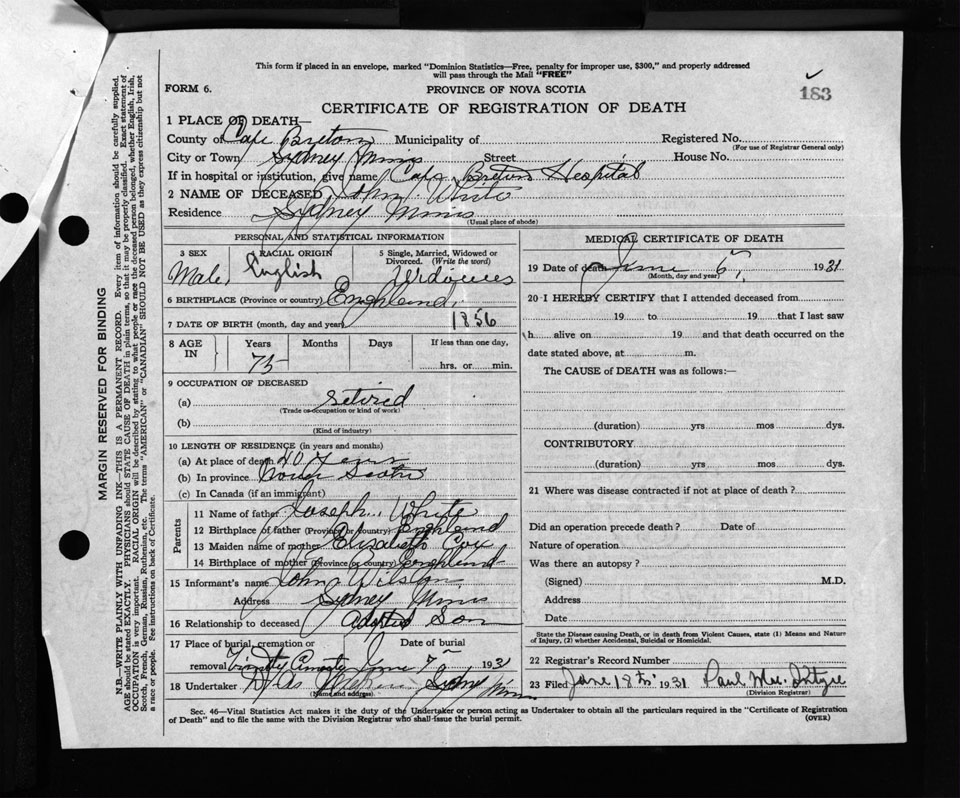 This form if placed in an envelope, marked "Dominion Statistics—Free, penalty for improper use, $300," and properly addressed
will pass through the Mail "FREE"
FORM 6.
PROVINCE OF NOVA SCOTIA
183
CERTIFICATE OF REGISTRATION OF DEATH
1 PLACE OF DEATH—
County of Cape Breton Municipality of Registered No.
(For use of Registrar General only)
City or Town Sydney Mines Street House No.
If in hospital or institution, give name Cape Breton Hospital
2 NAME OF DECEASED John White
Residence Sydney Mines
(Usual place of abode)
PERSONAL AND STATISTICAL INFORMATION
3 SEX 4 RACIAL ORIGIN 5 Single, Married, Widowed or Divorced. (Write the word)
Male, English
6 BIRTHPLACE (Province or country) England,
7 DATE OF BIRTH (month, day and year) 1856
8 AGE IN Years Months Days If less than one day,
75 hrs. or min.
9 OCCUPATION OF DECEASED
(a) retired
(Trade or occupation or kind of work)
(b)
(Kind of industry)
10 LENGTH OF RESIDENCE (in years and months)
(a) At place of death 40 years
(b) In province Nova Scotia
(c) In Canada (if an immigrant)
Parents
11 Name of father Joseph White
12 Birthplace of father (Province or country) England
13 Maiden name of mother Elisabeth Cox
14 Birthplace of mother (Province or country) England
15 Informant's name John Wilson
Address Sydney Mines
16 Relationship to deceased Adopted Son
17 Place of burial, cremation or Date of burial
removal Trinity June 7 1931
18 Undertaker Sydney Mines
(Name and address)
MEDICAL CERTIFICATE OF DEATH
19 Date of death June 6, 1931
(Month, day and year)
20 I HEREBY CERTIFY that I attended deceased from
19 to 19 that I last saw
h alive on 19 and that death occurred on the
date stated above, at m.
The CAUSE of DEATH was as follows:—
(duration) yrs mos dys.
CONTRIBUTORY
(duration) yrs mos dys.
21 Where was disease contracted if not at place of death?
Did an operation precede death? Date of
Nature of operation
Was there an autopsy?
(Signed) M.D.
Address
Date
State the Disease causing Death, or in death from Violent Causes, state (1) Means and Nature
of Injury, (2) whether Accidental, Suicidal or Homicidal.
22 Registrar's Record Number
23 Filed June 18th 1931 Paul
(Division Registrar)
Sec. 46—Vital Statistics Act makes it the duty of the Undertaker or person acting as Undertaker to obtain all the particulars required in the "Certificate of Registration
of Death" and to file the same with the Division Registrar who shall issue the burial permit.
(OVER)
MARGIN RESERVED FOR BINDING
N.B.—WRITE PLAINLY WITH UNFADING INK—THIS IS A PERMANENT RECORD. Every item of information should be carefully supplied.
AGE should be stated EXACTLY. PHYSICIANS should STATE CAUSE OF DEATH in plain terms, so that it may be properly classified. Exact statement of
OCCUPATION is very important. RACIAL ORIGIN will be described by stating to what people or race the deceased person belonged, whether English, Irish,
Scotch, French, German, Russian, Ruthenian, etc. The terms "AMERICAN" or "CANADIAN" SHOULD NOT BE USED as they express citizenship but not
a race or people. See instructions on back of Certificate.